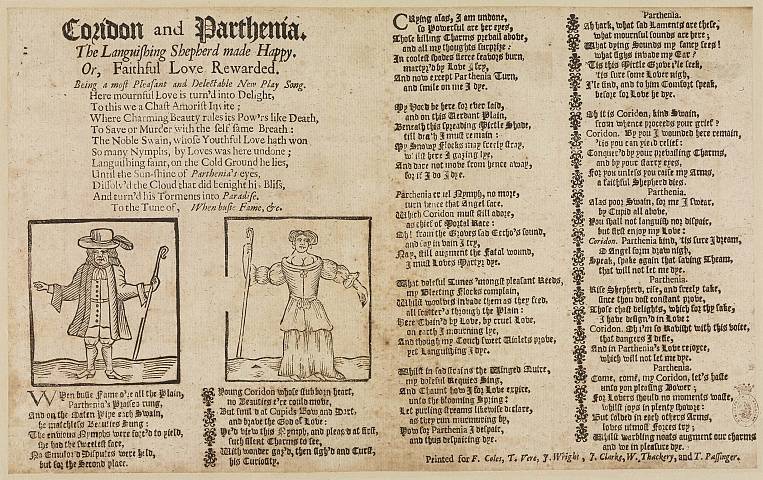 Coridon and Parthenia.
The Languishing Shepherd made Happy.
Or, Faithful Love Rewarded.
Being a most Pleasant and Delectable New Play Song.
Here mournful Love is turn'd into Delight,
To this we a Chast Amorist Invite;
Where Charming Beauty rules its Pow'rs like Death,
To Save or Murder with the self same Breath:
The Noble Swain, whose Youthful Love hath won
So many Nymphs, by Loves was here undone;
Languishing faint, on the Cold Ground he lies,
Until the Sun-shine of Parthenia's eyes,
Dissolv'd the Cloud that did benight his Bliss,
And turn'd his Torments into Paradise.
To the Tune of, When busie Fame, &c.
WHen busie Fame o're all the Plain,
Parthenia's Praises rung,
And on the Oaten Pipe each Swain,
he matchless Beauties Sung:
The envious Nymphs were forc'd to yield,
she had the sweetest face,
No Emulous Disputes were held,
but for the Second place.
Young Coridon whose stubborn heart,
no Beauties e're could move,
But smil'd at Cupids Bow and Dart,
and brav'd the God of Love:
He'd view this Nymph, and pleas'd at first,
such silent Charms to see,
With wonder gaz'd, then sigh'd and Curst,
his Curiosity.
CRying alas, I am undone,
so Powerful are her eyes,
Those killing Charms prevail above,
and all my thoughts surprize:
In coolest shades fierce feavors burn,
martyr'd by Love I fry,
And now except Parthenia Turn,
and smile on me I dye.
My Vow'd be here for ever laid,
and on this Verdant Plain,
Beneath this spreading Mirtle Shade,
till dea'h I must remain:
My Snowy Flocks may freely stray,
whilst here I gazing lye,
And dare not move from hence away,
for if I do I dye.
Parthenia cruel Nymph, no more,
turn hence that Angel face,
Which Coridon must still adore,
as chief of Mortal Race:
Oh! from the Groves sad Eccho's sound,
and say in vain I try,
Nay, still augment the Fatal wound,
I must Loves Martyr dye.
What doleful Tunes 'mongst pleasant Reeds,
my Bleeting Flocks complain,
Whilst woolves invade them as they feed,
all scatter'd through the Plain:
Here Chain'd by Love, by cruel Love,
on earth I mourning lye,
And though my Couch sweet Violets prove,
yet Languishing I dye.
Whilst in sad strains the Winged Quire,
my doleful Requies Sing,
And Chaunt how I for Love expire,
unto the blooming Spring:
Let purling streams likewise declare,
as they run murmuring by,
How for Parthenia I despair,
and thus despairing dye.
Parthenia.
Ah hark, what sad Laments are these,
what mournful sounds are here;
What dying Sounds my fancy sees!
what sighs invade my Ear?
'Tis this Mirtle Grove i'le seek,
'tis sure some Lover nigh,
I'le find, and to him Comfort speak,
before for Love he dye.
Oh it is Coridon, kind Swain,
from whence proceeds your grief?
Coridon. By you I wounded here remain,
'tis you can yield relief:
Conquer'd by your prevailing Charms,
and by your starry eyes,
For you unless you raise my Arms,
a faithful Shepherd dies.
Parthenia.
Alas poor Swain, for me I swear,
by Cupid all above,
You shall not languish nor dispair,
but first enjoy my Love:
Coridon. Parthenia kind, 'tis sure I dream,
O Angel form draw nigh,
Speak, speak again that saving Theam,
that will not let me dye.
Parthenia.
Rise Shepherd, rise, and freely take,
since thou dost constant prove,
Those chast delights, which for thy sake,
I have design'd in Love:
Coridon. Oh i'm so Ravisht with this voice,
that dangers I defie,
And in Parthenia's Love rejoyce,
which will not let me dye.
Parthenia.
Come, come, my Coridon, let's haste
unto yon pleasing Bower;
For Lovers should no moments waste,
whilst joys in plenty showre:
But folded in each others Arms,
loves utmost Forces try;
Whilst warbling noats augment our charms
and we in pleasure dye.
Printed for F. Coles, T. Vere, J. Wright, J. Clarke, W. Thackery, and T. Passinger.